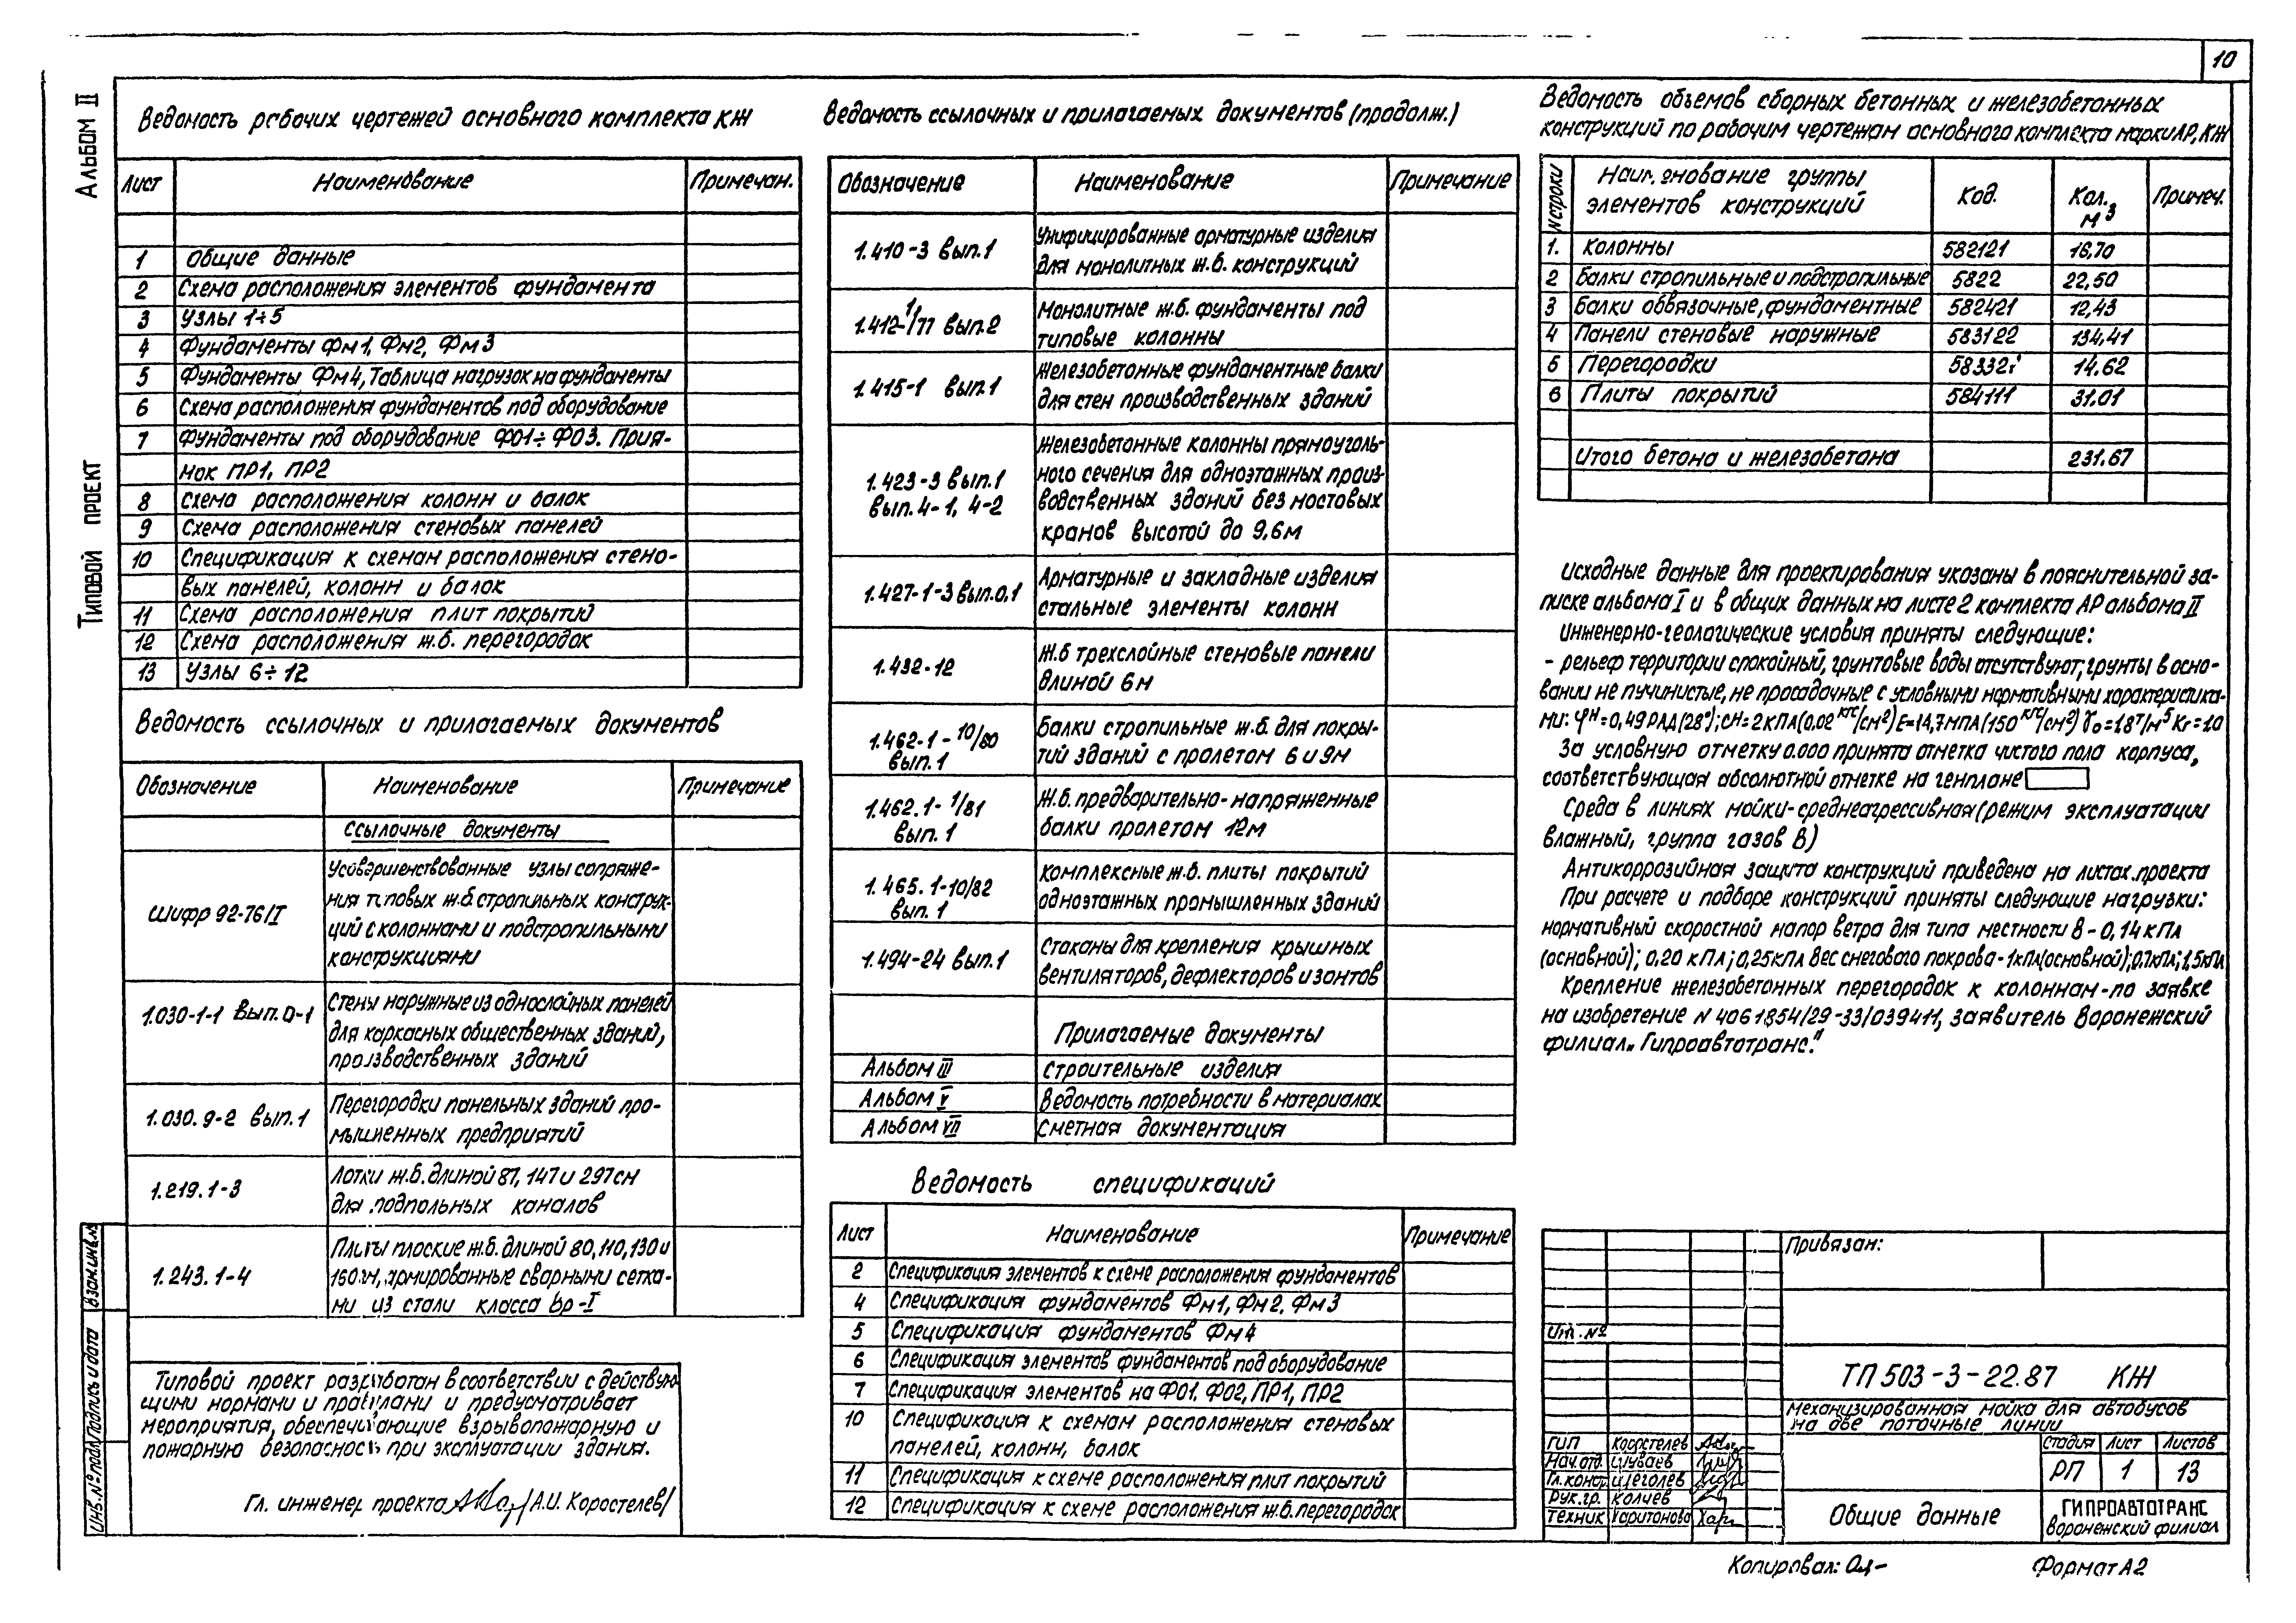 10
Альбом II
Типовой проект
Ведомость рабочих чертежей основного комплекта КЖ
Лист Наименование Примечан.
1 Общие данные
2 Схема расположения элементов фундамента
3 Узлы 1÷5
4 Фундаменты Фм1, Фм2, Фм3
5 Фундаменты Фм4, Таблица нагрузок на фундаменты
6 Схема расположения фундаментов под оборудование
7 Фундаменты под оборудование ФО1÷ФО3. Прия-
мок ПР1, ПР2
8 Схема расположения колонн и балок
9 Схема расположения стеновых панелей
10 Спецификация к схемам расположения стено-
вых панелей, колонн и балок
11 Схема расположения плит покрытий
12 Схема расположения ж.б. перегородок
13 Узлы 6÷12
Ведомость ссылочных и прилагаемых документов
Обозначение Наименование Примечание
Ссылочные документы
Усовершенствованные узлы сопряже-
ния типовых ж.б. стропильных конструк-
Шифр 92-76/I
ций с колоннами и подстропильными
конструкциями
1.030-1-1 Вып. 0-1 Стены наружные из однослойных панелей
для каркасных общественных зданий,
производственных зданий
1.030.9-2 вып.1 Перегородки панельных зданий про-
мышленных предприятий
1.219.1-3 Лотки ж.б. длиной 87, 147 и 297см
для подпольных каналов
Плиты плоские ж.б. длиной 80, 110, 130 и
1.243.1-4 160см, армированные сварными сетка-
ми из стали класса Вр-I
Типовой проект разработан в соответствии с действую-
щими нормами и правилами и предусматривает
мероприятия, обеспечивающие взрывопожарную и
пожарную безопасность при эксплуатации здания.
Гл. инженер проекта /А.И. Коростелев/
Взам.инв.№
Подпись и дата
Инв.№ подл.
Ведомость ссылочных и прилагаемых документов (продолж.)
Обозначение Наименование Примечание
1.410-3 вып.1 Унифицированные арматурные изделия
для монолитных ж.б. конструкций
1.412-1/77 вып.2 Монолитные ж.б. фундаменты под
типовые колонны
1.415-1 вып.1 Железобетонные фундаментные балки
для стен производственных зданий
Железобетонные колонны прямоуголь-
1.423-3 вып.1 ного сечения для одноэтажных произ-
вып.4-1, 4-2 водственных зданий без мостовых
кранов высотой до 9,6м
1.427-1-3 вып.0,1 Арматурные и закладные изделия
стальные элементы колонн
1.432-12 Ж.б трехслойные стеновые панели
длиной 6м
1.462-1-10/80 Балки стропильные ж.б. для покры-
вып.1 тий зданий с пролетом 6 и 9м
1.462.1-1/81 Ж.б. предварительно-напряженные
вып. 1 балки пролетом 12м
1.465.1-10/82 Комплексные ж.б. плиты покрытий
вып. 1 одноэтажных промышленных зданий
1.494-24 вып.1 Стаканы для крепления крышных
вентиляторов, дефлекторов и зонтов
Прилагаемые документы
Альбом III Строительные изделия
Альбом V Ведомость потребности в материалах
Альбом VII Сметная документация
Ведомость спецификаций
Лист Наименование Примечание
2 Спецификация элементов к схеме расположения фундаментов
4 Спецификация фундаментов Фм1, Фм2, Фм3
5 Спецификация фундаментов Фм4
6 Спецификация элементов фундаментов под оборудование
7 Спецификация элементов на ФО1. ФО2, ПР1, ПР2
10 Спецификация к схемам расположения стеновых
панелей, колонн, балок
11 Спецификация к схеме расположения плит покрытий
12 Спецификация к схеме расположения ж.б. перегородок
Ведомость объемов сборных бетонных и железобетонных
конструкций по рабочим чертежам основного комплекта марки АР, КЖ
N строки Наименование группы элементов конструкций Код. Кол. м3 Примеч.
1. Колонны 582121 16,70
2 Балки стропильные и подстропильные 5822 22,50
3 Балки обвязочные, фундаментные 582421 12,43
4 Панели стеновые наружные 583122 134,41
5 Перегородки 58332 14.62
6 Плиты покрытий 584111 31.01
Итого бетона и железобетона 231.67
Исходные данные для проектирования указаны в пояснительной за-
писке альбома I и в общих данных на листе 2 комплекта АР альбома II
Инженерно-геологические условия приняты следующие:
- рельеф территории спокойный, грунтовые воды отсутствуют, грунты в осно-
вании не пучинистые, не просадочные с условными нормативными характеристика-
ми: φн=0,49 рад (28°); сн=2кПа (0.02 кгс/см2) Е=14,7МПа (150 кгс/см2) γо=1.8т/м3 Кг=1.0
За условную отметку 0.000 принята отметка чистого пола корпуса,
соответствующая абсолютной отметке на генплане
Среда в линиях мойки-среднеагрессивная (режим эксплуатации
влажный, группа газов В)
Антикоррозийная защита конструкций приведена на листах проекта
При расчете и подборе конструкций приняты следующие нагрузки:
нормативный скоростной напор ветра для типа местности В-0,14 кПа
(основной); 0,20 кПа; 0,25кПа Вес снегового покрова-1кПа (основной); 0.7кПа; 1,5кПа
Крепление железобетонных перегородок к колоннам-по заявке
на изобретение N 4061854/29-33/039411, заявитель Воронежский
филиал „Гипроавтотранс."
Привязан:
Инв.№
ТП 503-3-22.87 КЖ
Механизированная мойка для автобусов
на две поточные линии
ГИП Коростелев
Нач.отд. Шуваев
Гл.констр. Щеголев
Рук.гр. Колчев
Техник Харитонова
Стадия Лист Листов
РП 1 13
Общие данные
ГИПРОАВТОТРАНС
Воронежский филиал
Копировал:
Формат А2